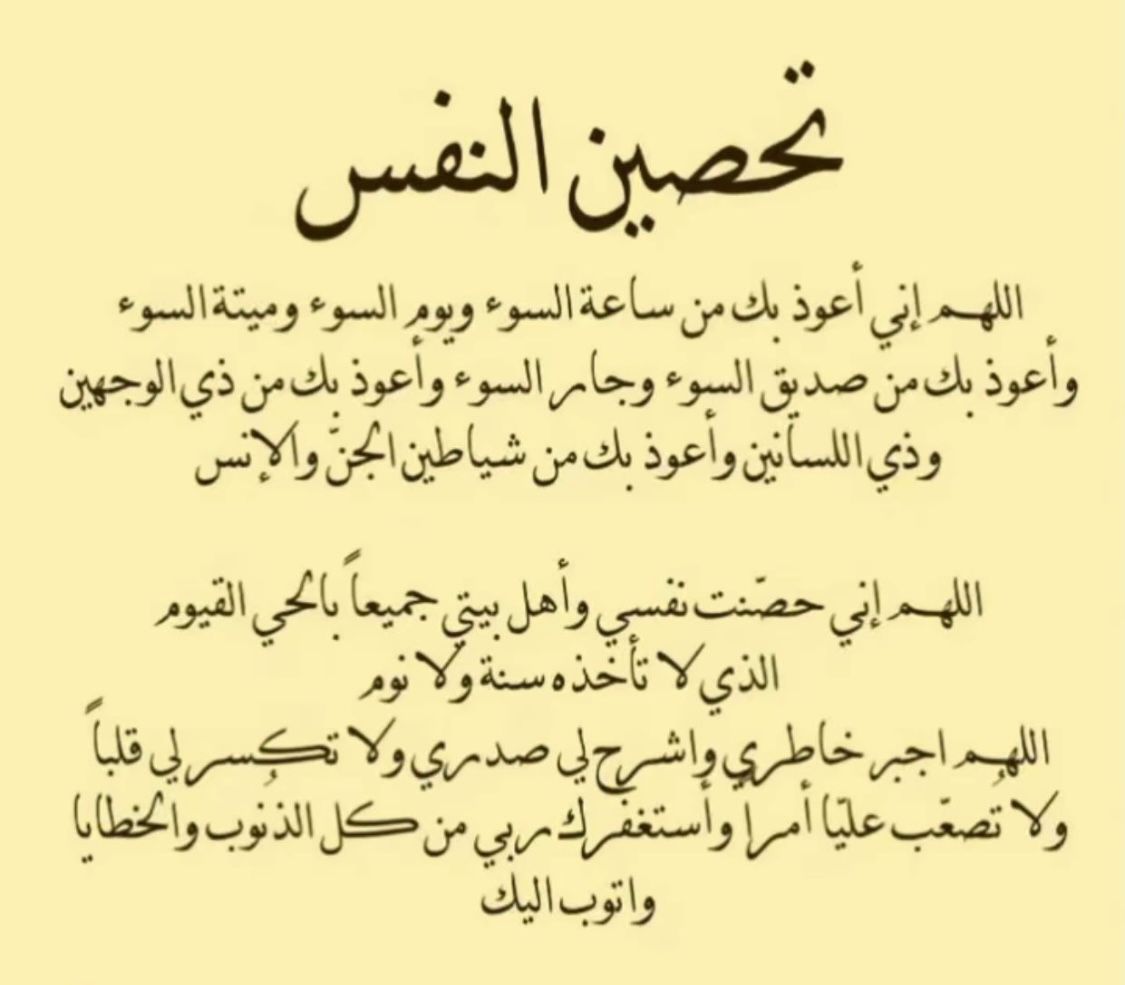 تحصين النفس
اللهم إني أعوذ بك من ساعة السوء ويوم السوء وميتة السوء
وأعوذ بك من صديق السوء وجار السوء وأعوذ بك من ذي الوجهين
وذي اللسانين وأعوذ بك من شياطين الجنّ والإنس
اللهم إني حصّنت نفسي وأهل بيتي جميعاً بالحي القيوم
الذي لا تأخذه سنة ولا نوم
اللهم اجبر خاطري واشرح لي صدري ولا تكسر لي قلباً
ولا تُصعّب عليّا أمراً وأستغفرك ربي من كل الذنُوب والخطايا
واتوب اليك